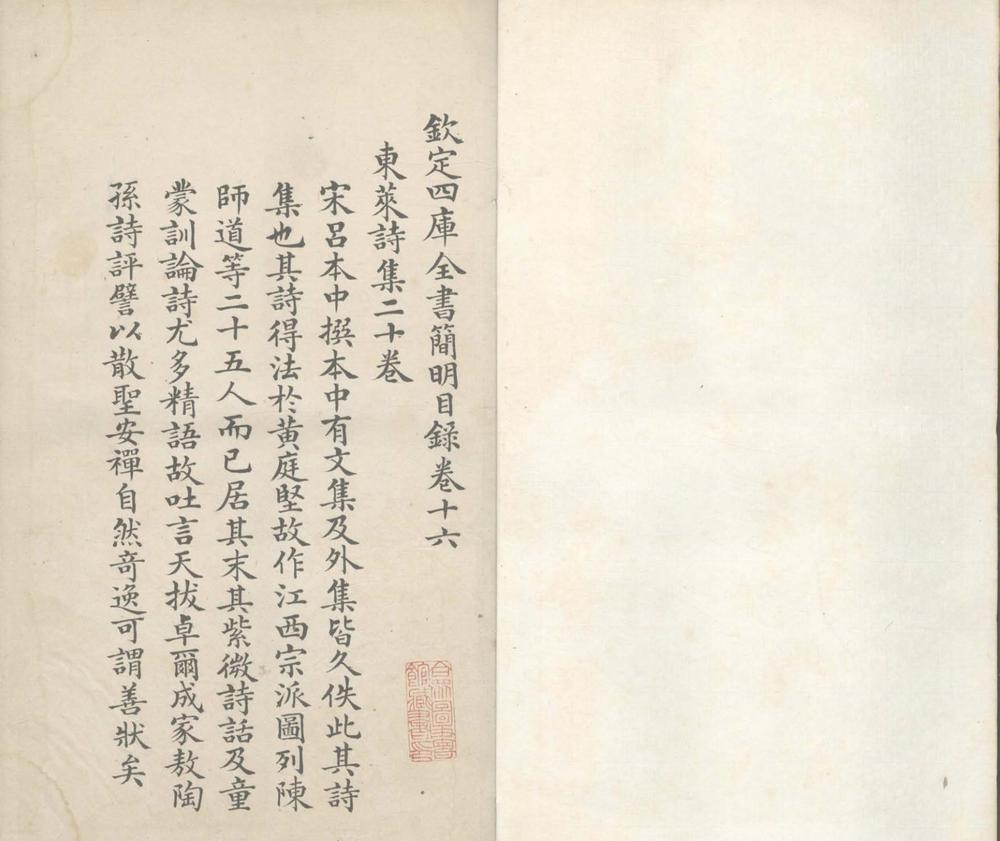 欽定四庫全書簡明目錄卷十六
東萊詩集二十卷
宋呂本中撰本中有文集及外集皆久佚此其詩
集也其詩得法於黃庭堅故作江西宗派圖列陳
師道等二十五人而已居其末其紫微詩話及童
蒙訓論詩尤多精語故吐言天拔卓爾成家敖陶
孫詩評譬以散聖安禪自然奇逸可謂善狀矣